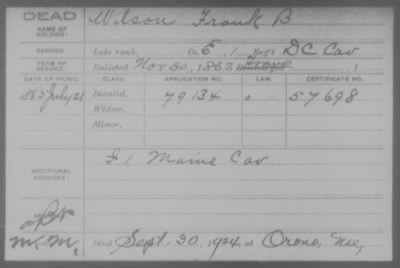 DEAD
NAME OF SOLDIER:
Wilson Frank B
SERVICE:
Late rank, Co. E, 1 Reg't DC Cav
TERM OF SERVICE:
Enlisted Nov 30, 1863
DATE OF FILING. CLASS. APPLICATION NO. LAW. CERTIFICATE NO.
1865 July 21 Invalid, 79134 57698
Widow,
Minor,
ADDITIONAL SERVICES:
F 1 Maine Cav
Died Sept. 30, 1924, at Orono, Me,